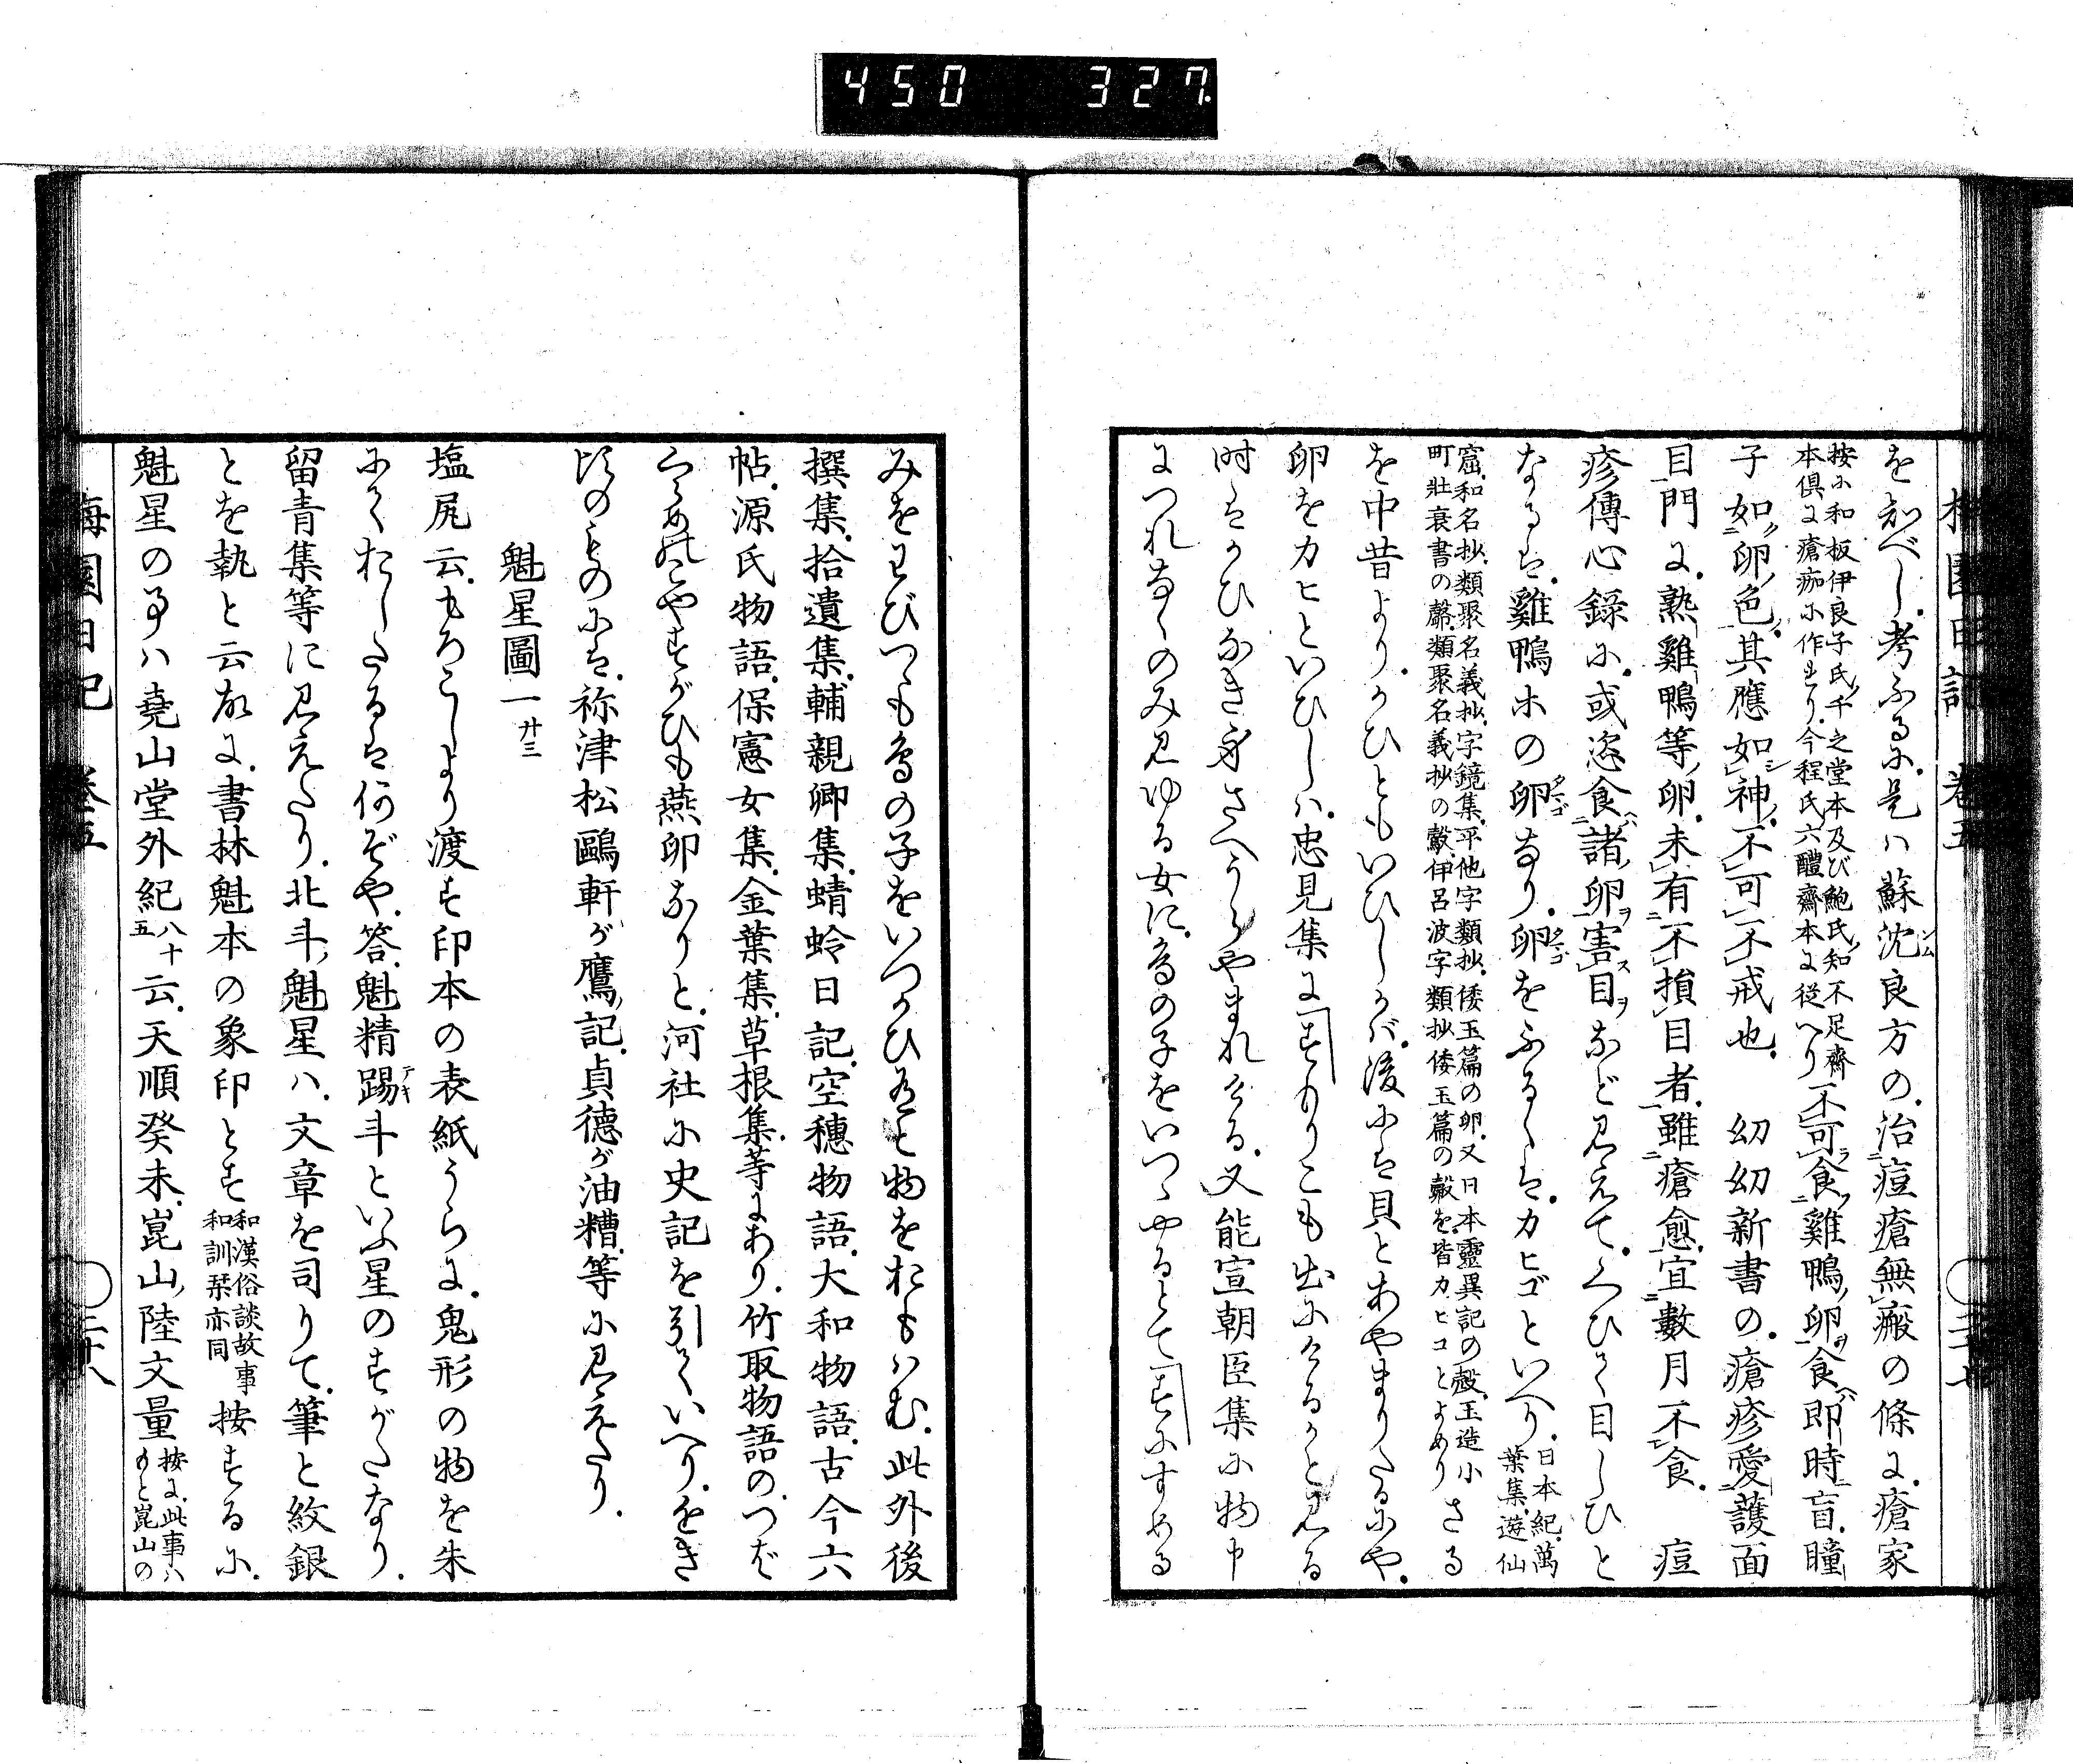 450 327
梅園日記 卷五
を知べし考ふるに是ハ蘇沈良方の治痘瘡無瘢の條に瘡家
按に和板伊良子氏千之堂本及び鮑氏知不足齋
本俱に瘡痂に作れり今程氏六醴齋本に從へり
不可食雞鴨卵食即時盲瞳
子如卵色其應如神不可不戒也 幼幼新書の瘡疹愛護面
目門に熟雞鴨等卵未有不損目者雖瘡愈宜數月不食 痘
疹傳心錄に或恣食諸卵害目など見えてくひて目しひと
なるは雞鴨ホの卵なり卵をふるくはカヒゴといへり
日本紀萬
葉集遊仙
窟和名抄類聚名義抄字鏡集平他字類抄倭玉篇の卵又日本靈異記の㲉玉造小
町壯衰書の㲉類聚名義抄の㲉伊呂波字類抄倭玉篇の㲉を皆カヒコとよめり
さる
を中昔よりかひともいひしかば後には貝とあやまりたるにや
卵をカヒといひしハ忠見集に「すもりこも出にけるかと見る
時はかひなき身さへうらやまれける又能宣朝臣集に物申
につれなくのみ見ゆる女に鳥の子をいつゝやるとて「すにすめる
みをわびつゝも鳥の子をいつかひ有と物をおもハむ此外後
撰集拾遺集輔親卿集蜻蛉日記空穗物語大和物語古今六
帖源氏物語保憲女集金葉集草根集等にあり竹取物語のつば
くらめのこやすがひも燕卵なりと河社に史記を引ていへり
ちかき
頃のものには祢津松鷗軒が鷹記貞德が油糟等に見えたり
魁星圖一 廿三
塩尻云もろこしより渡す印本の表紙うらに鬼形の物を朱
にておしたるは何ぞや答魁精踢斗といふ星のすがたなり
留青集等に見えたり北斗魁星ハ文章を司りて筆と紋銀
とを執と云故に書林魁本の象印とす
和漢俗談故事
和訓栞亦同
按するに
魁星の事ハ堯山堂外紀
八十
五
云天順癸未崑山陸文量
按に此事ハ
もと崑山の
梅園日記 卷五